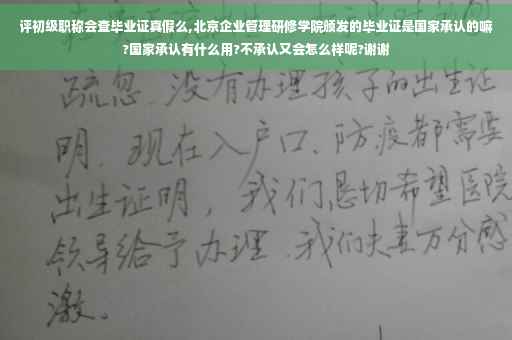 评初级职称会查毕业证真假么,北京企业管理研修学院颁发的毕业证是国家承认的嘛
?国家承认有什么用?不承认又会怎么样呢?谢谢
疏忽、没有办理孩子的出生证
明、现在入户口、防疫都需要
出生证明，我们恳切希望医院
领导给予办理、我们夫妻万分感
激。